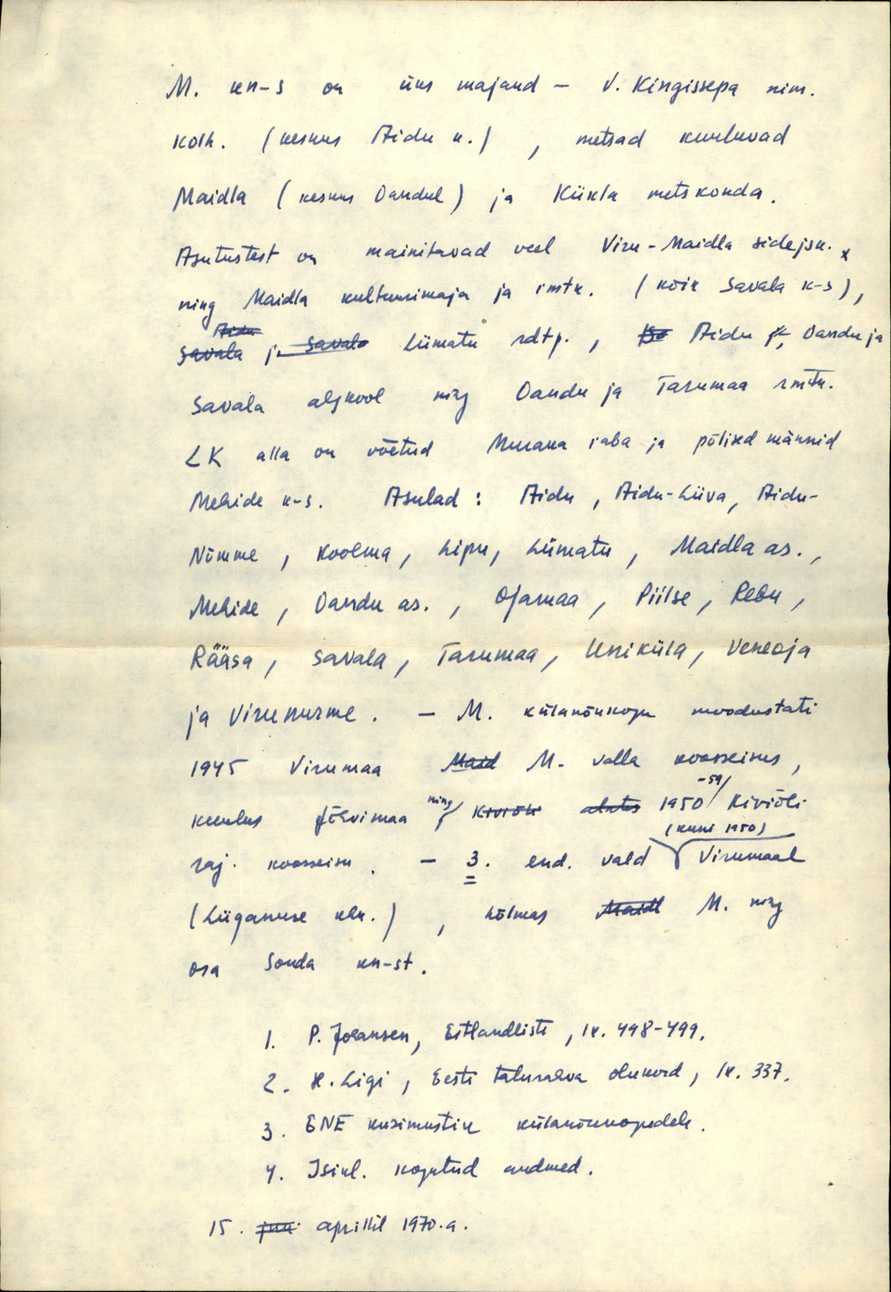 M. kn-s on üks majand – V. Kingissepa nim.
kolh. (keskus Aidu k.), metsad kuuluvad
Maidla (keskus Oandul) ja Kiikla metskonda.
Asutustest on mainitavad veel Viru-Maidla sidejsk. x
ning Maidla kultuurimaja ja rmtk. (kõik Savala k-s),
Aidu
Savala ja Savala Liimatu rdtp., Aidu k, Oandu ja
Savala algkool ning Oandu ja Tarumaa rmtk.
LK alla on võetud Muraka raba ja põlised männid
Mehide k-s. Asulad: Aidu, Aidu-Liiva, Aidu-
Nõmme, Koolma, Lipu, Liimatu, Maidla as.,
Mehide, Oandu as., Ojamaa, Piilse, Rebu,
Rääsa, Savala, Tarumaa, Uniküla, Veneoja
ja Virunurme. – M. külanõukogu moodustati
1945 Virumaa Maid M. valla koosseisus,
-59
kuulus Jõhvimaa ning Kiviõli alates 1950 Kiviõli
(kuni 1950)
raj. koosseisu. – 3. end. vald Virumaal
(Lüganuse khk.), hõlmas Maidl M. ning
osa Sonda kn-st.
1. P. Johansen, Estlandliste, lk. 498-499.
2. H. Ligi, Eesti talurahva olukord, lk. 337.
3. ENE küsimustik külanõukogudele.
4. Isikl. kogutud andmed.
15. juu aprillil 1970.a.